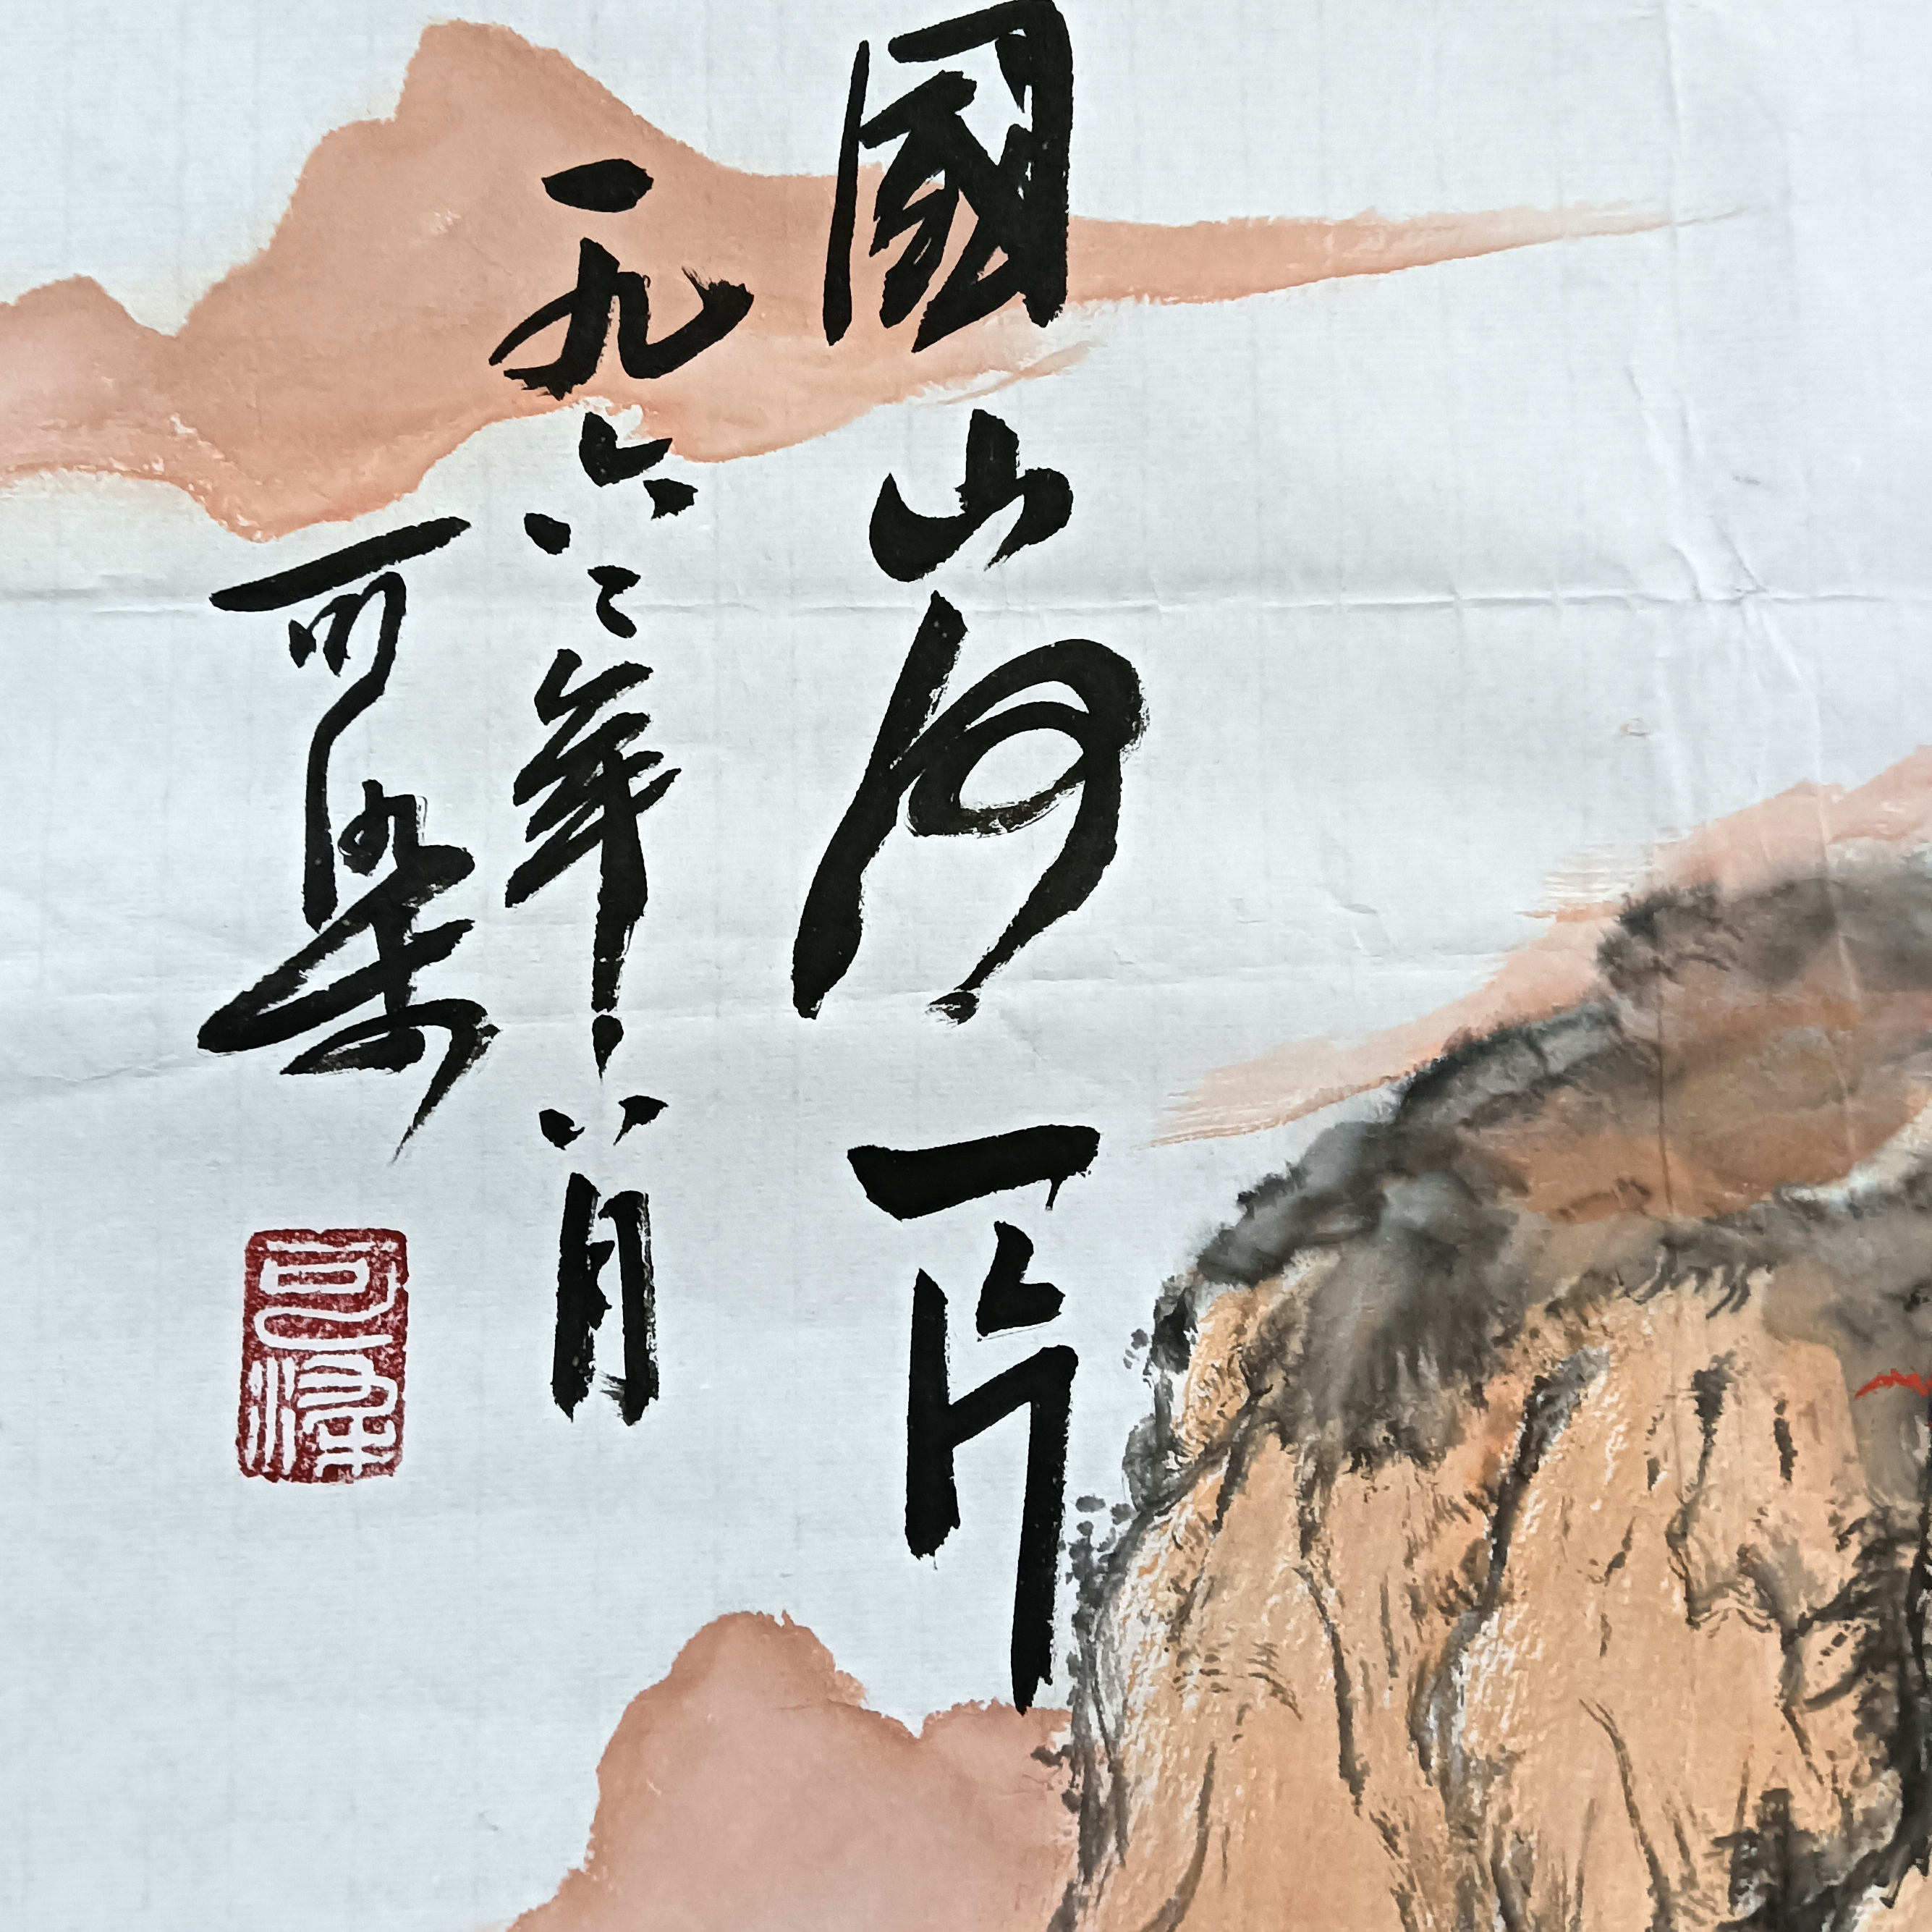 國山河一片
一九六二年八月
可染
可染